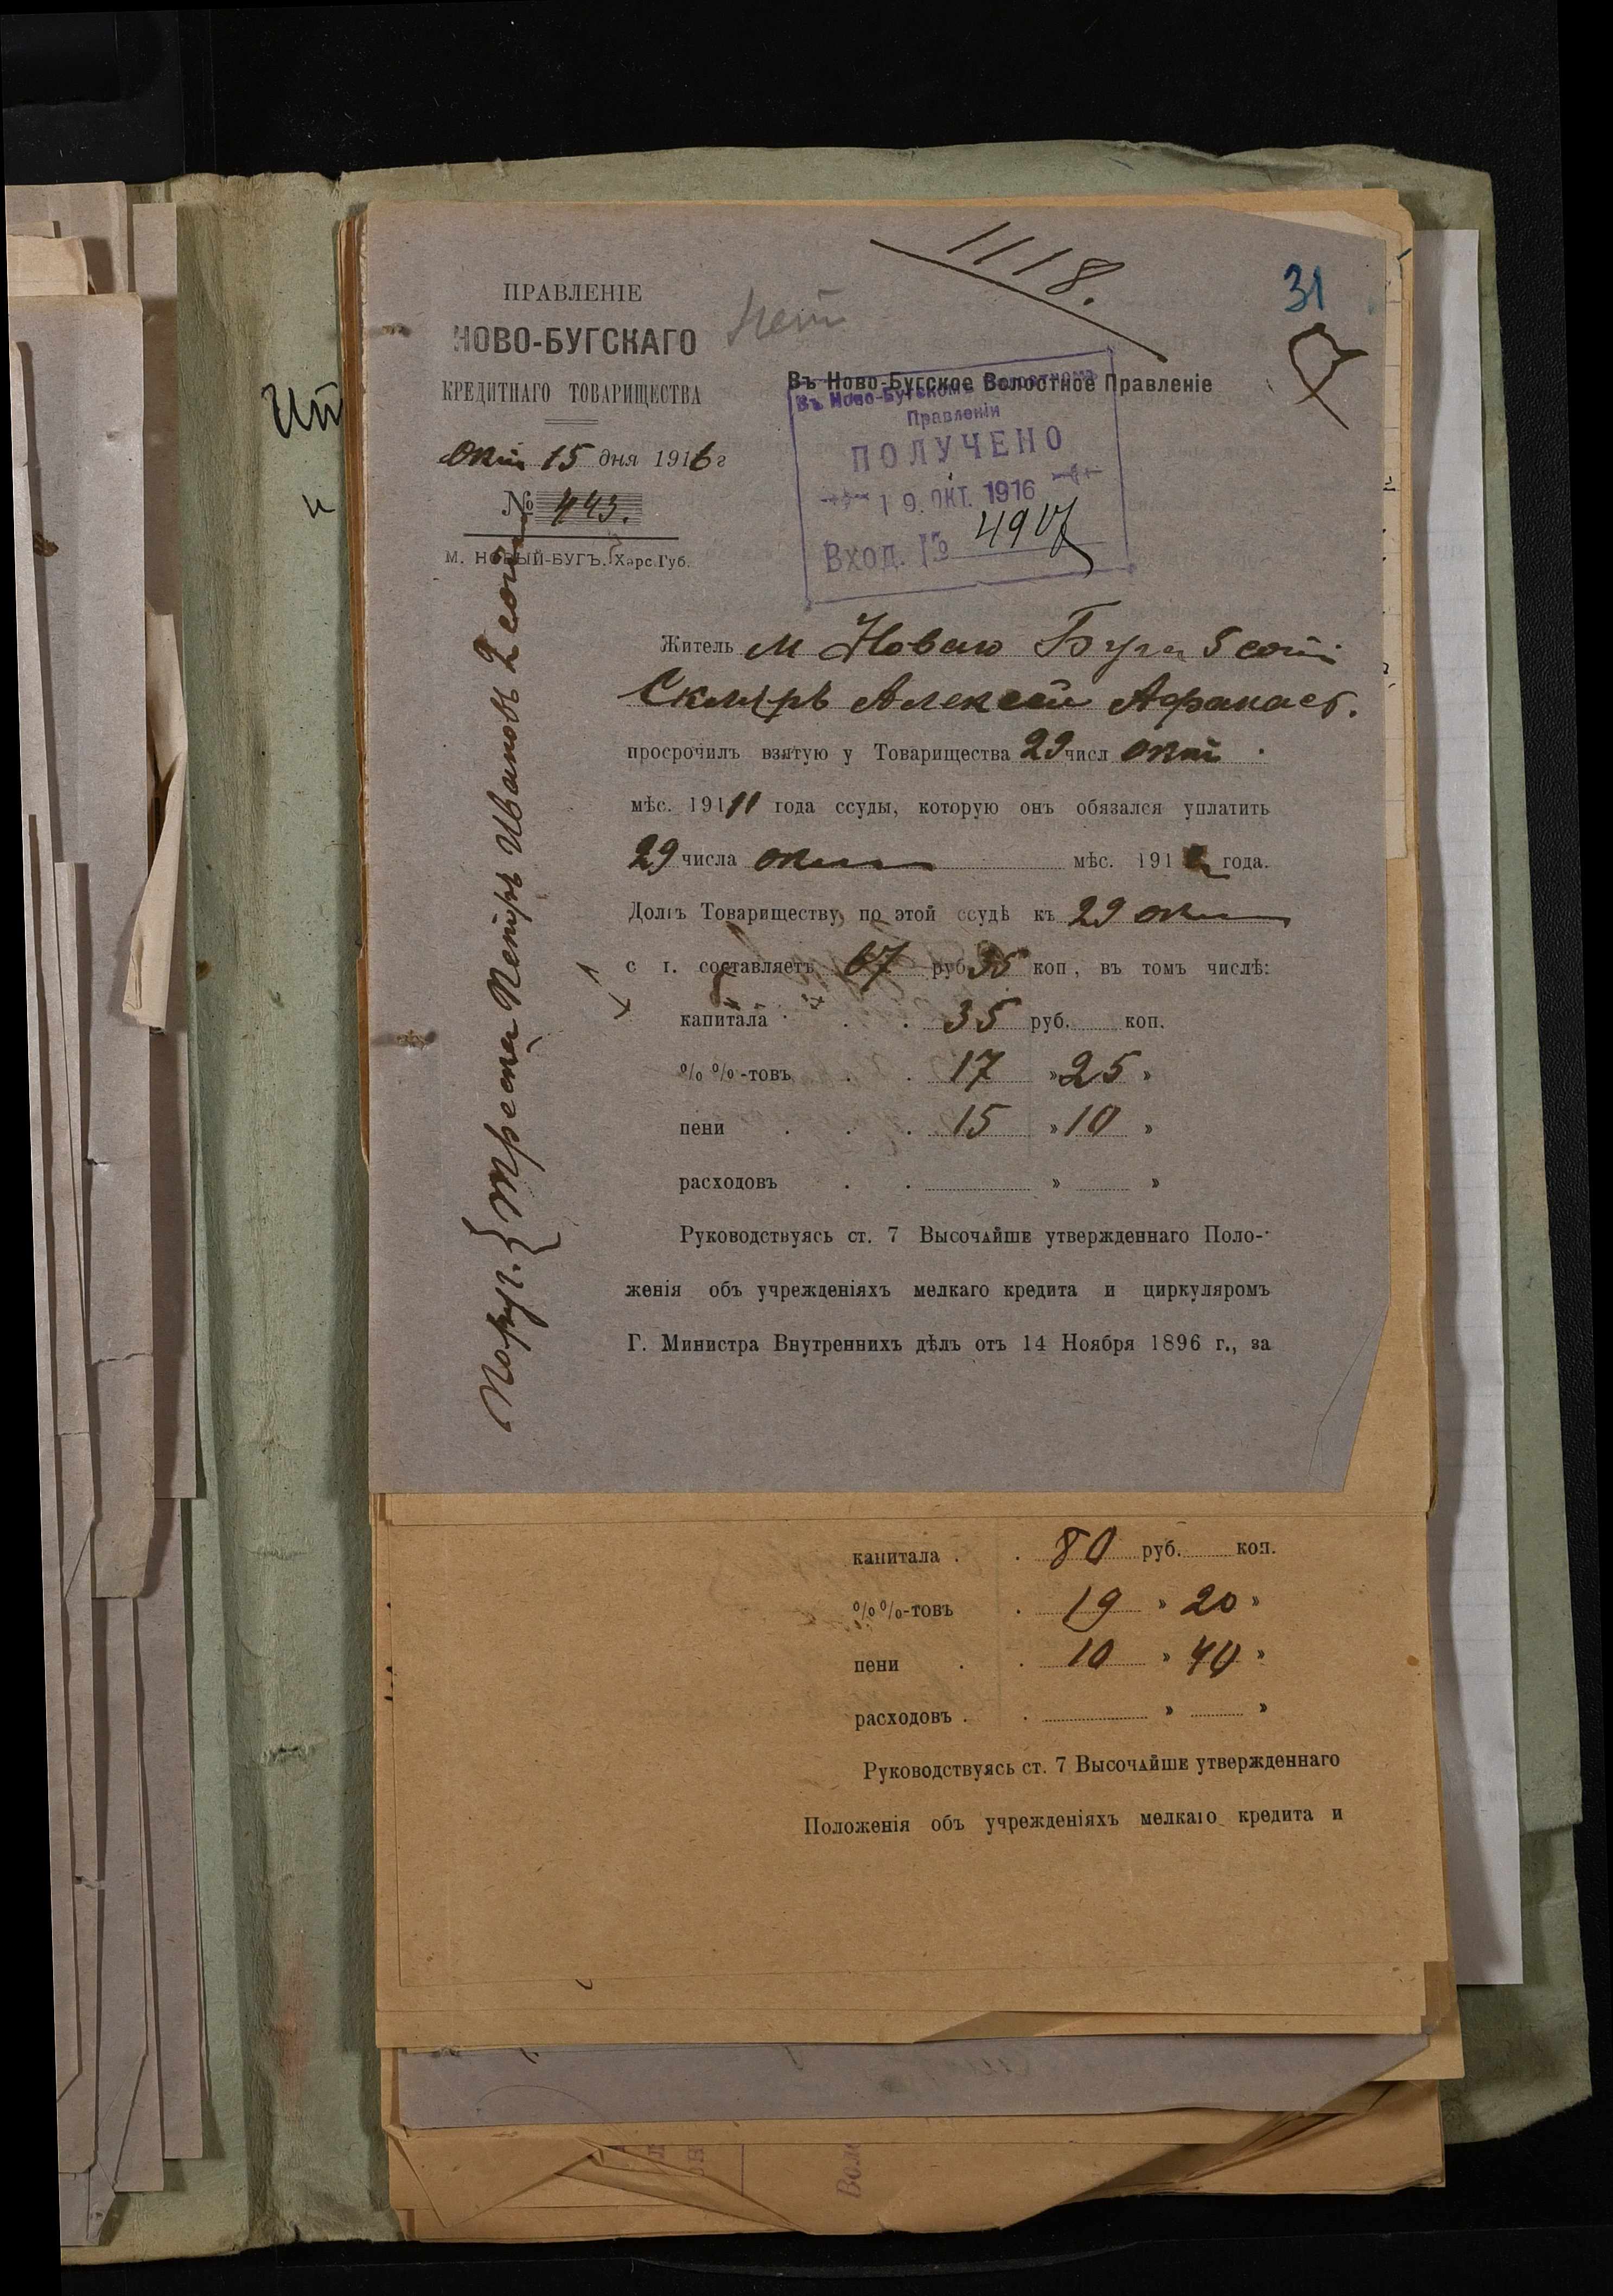 1118.
31
ПРАВЛЕНІЕ
НОВО-БУГСКАГО
КРЕДИТНАГО ТОВАРИЩЕСТВА
Окт 15 дня 1916 г
№ 443.
М. НОВЫЙ-БУГЪ, Харс. Губ.
Въ Ново-Бугское Волостное Правленіе
Въ Ново-Бугскомъ Волостномъ
Правленіи
ПОЛУЧЕНО
19. ОКТ. 1916
Вход. № 4907
Житель м Новаго Буга 5 сотни
Скляръ Алексей Афанасъ.
просрочилъ взятую у Товарищества 29 числ окт
мѣс. 19111 года ссуды, которую онъ обязался уплатить
29 числа окт мѣс. 1912 года.
Долгъ Товариществу по этой ссудѣ къ 29 окт
с г. составляетъ 67 руб 35 коп, въ томъ числѣ:
капитала . . 35 руб. коп.
% %-товъ . . 17 » 25 »
пени . . . 15 » 10 »
расходовъ . . » »
Руководствуясь ст. 7 Высочайше утвержденнаго Поло-
женія объ учрежденіяхъ мелкаго кредита и циркуляромъ
Г. Министра Внутреннихъ дѣлъ отъ 14 Ноября 1896 г., за
Поруч. } Петръ Ивановъ 2 сот
капитала . . 80 руб. коп.
%%-товъ . 19 » 20 »
пени . . 10 » 40 »
расходовъ . . » »
Руководствуясь ст. 7 Высочайше утвержденнаго
Положенія объ учрежденіяхъ мелкаго кредита и